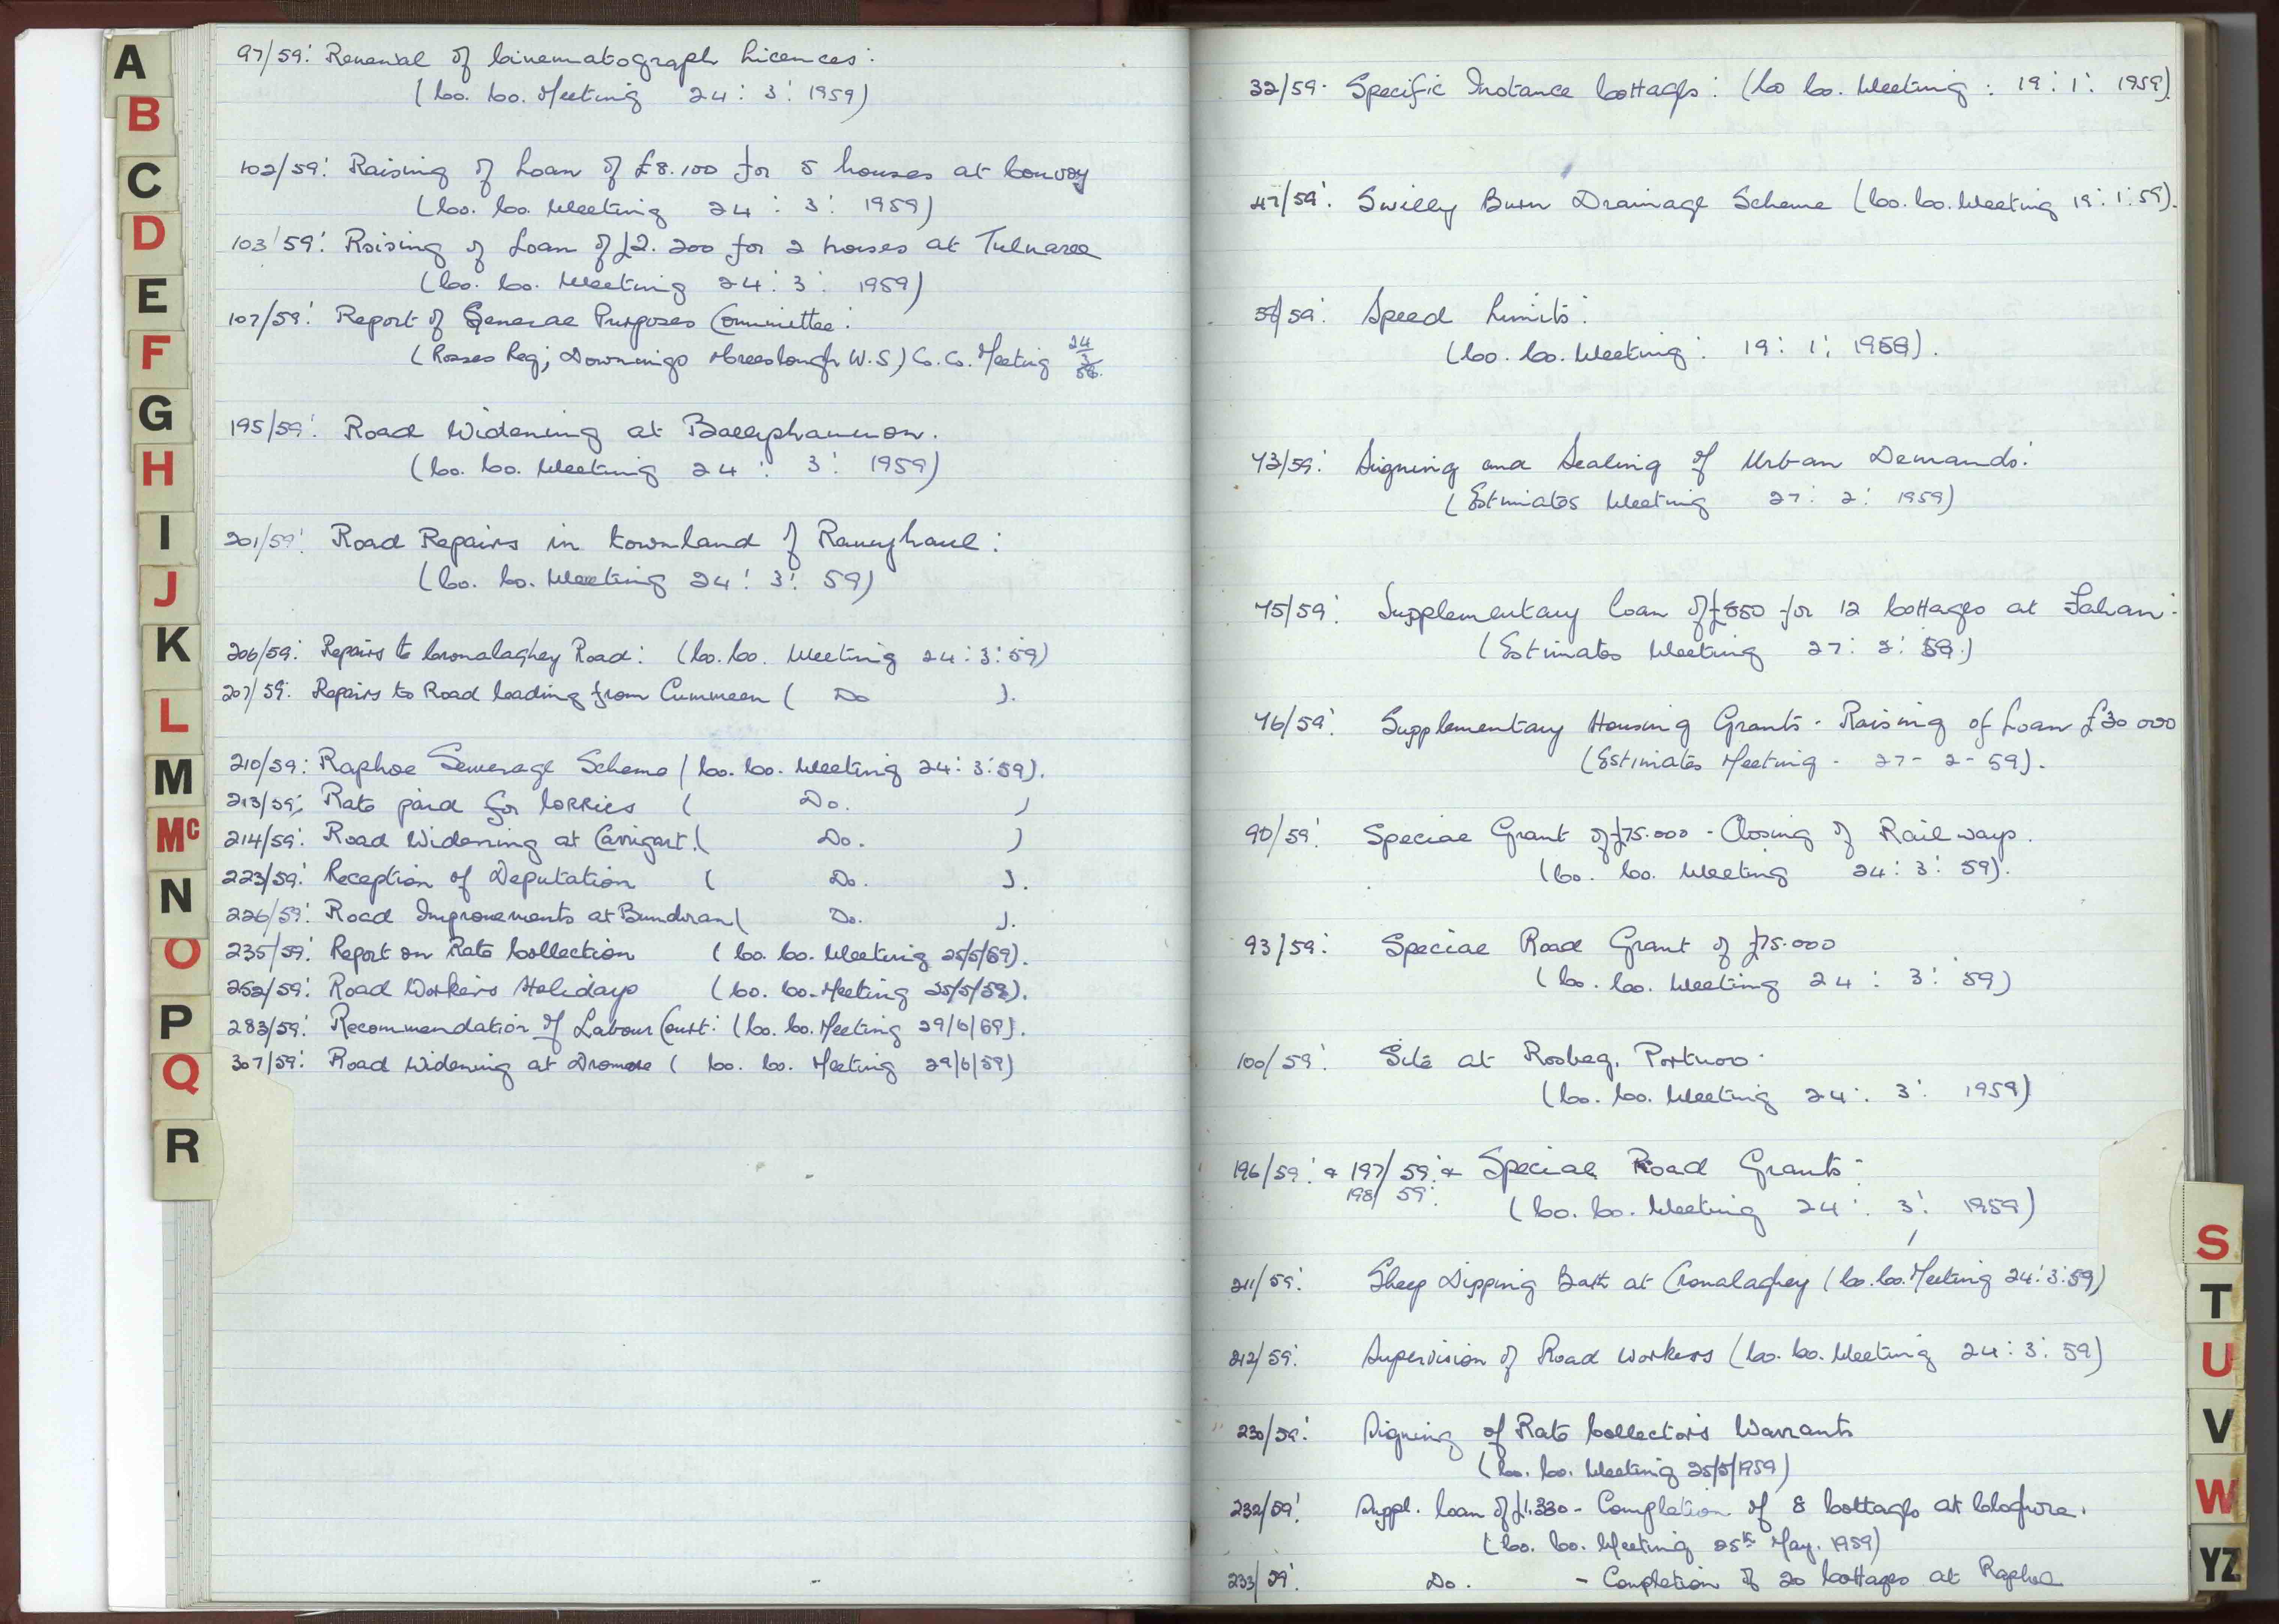 A
B
C
D
E
F
G
H
I
J
K
L
M
Mc
N
O
P
Q
R
97/59: Renewal of Cinematograph Licences:
(Co. Co. Meeting 24: 3: 1959)
102/59: Raising of Loan of £8.100 for 5 houses at Convoy
(Co. Co. Meeting 24: 3: 1959)
103/59: Raising of Loan of £2.200 for 2 houses at Tulnaree
(Co. Co. Meeting 24: 3: 1959)
107/59: Report of General Purposes Committee:
(Rosses Reg; Downings Creeslough W.S) Co. Co. Meeting 24/3/59.
195/59: Road Widening at
(Co. Co. Meeting 24: 3: 1959)
201/59: Road Repairs in townland of
(Co. Co. Meeting 24: 3: 59)
206/59: Repairs to Cronalaghey Road: (Co. Co. Meeting 24: 3: 59)
207/59: Repairs to Road leading from Cummeen ( Do ).
210/59: Raphoe Sewerage Scheme (Co. Co. Meeting 24: 3: 59).
213/59: Rate paid for lorries ( Do. )
214/59: Road Widening at Carrigart. ( Do. )
223/59: Reception of Deputation ( Do. ).
226/59: Road Improvements at Bundoran ( Do. ).
235/59: Report on Rate Collection (Co. Co. Meeting 25/5/59).
252/59: Road Workers Holidays (Co. Co. Meeting 25/5/59).
283/59: Recommendation of Labour Court: (Co. Co. Meeting 29/6/59).
307/59: Road Widening at Dromore (Co. Co. Meeting 29/6/59)
32/59. Specific Instance Cottages: (Co Co. Meeting: 19: 1: 1959).
47/59: Swilly Burn Drainage Scheme (Co. Co. Meeting 19: 1: 59).
Speed Limits:
(Co. Co. Meeting: 19: 1: 1959).
73/59: Signing and Sealing of Urban Demands:
(Estimates Meeting 27: 2: 1959)
75/59: Supplementary loan of £850 for 12 Cottages at Fahan:
(Estimates Meeting 27: 2: 59.)
76/59: Supplementary Housing Grants - Raising of Loan £30 000
(Estimates Meeting - 27 - 2 - 59).
90/59: Special Grant of £75.000 - Closing of Railways.
(Co. Co. Meeting 24: 3: 59).
93/59: Special Road Grant of £75.000
(Co. Co. Meeting 24: 3: 59)
100/59: Site at Rosbeg, Portnoo.
(Co. Co. Meeting 24: 3: 1959)
196/59: & 197/59: & Special Road Grants:
198/59:
(Co. Co. Meeting 24: 3: 1959)
211/59: Sheep Dipping Bath at Cronalaghey (Co. Co. Meeting 24: 3: 59)
212/59: Supervision of Road Workers (Co. Co. Meeting 24: 3: 59)
230/59: Signing of Rate Collectors Warrants
(Co. Co. Meeting 25/5/1959)
232/59: Suppl. loan of £1.330 - Completion of 8 Cottages at Cloghore.
(Co. Co. Meeting 25th May. 1959)
233/59: Do. - Completion of 20 Cottages at Raphoe
S
T
U
V
W
YZ